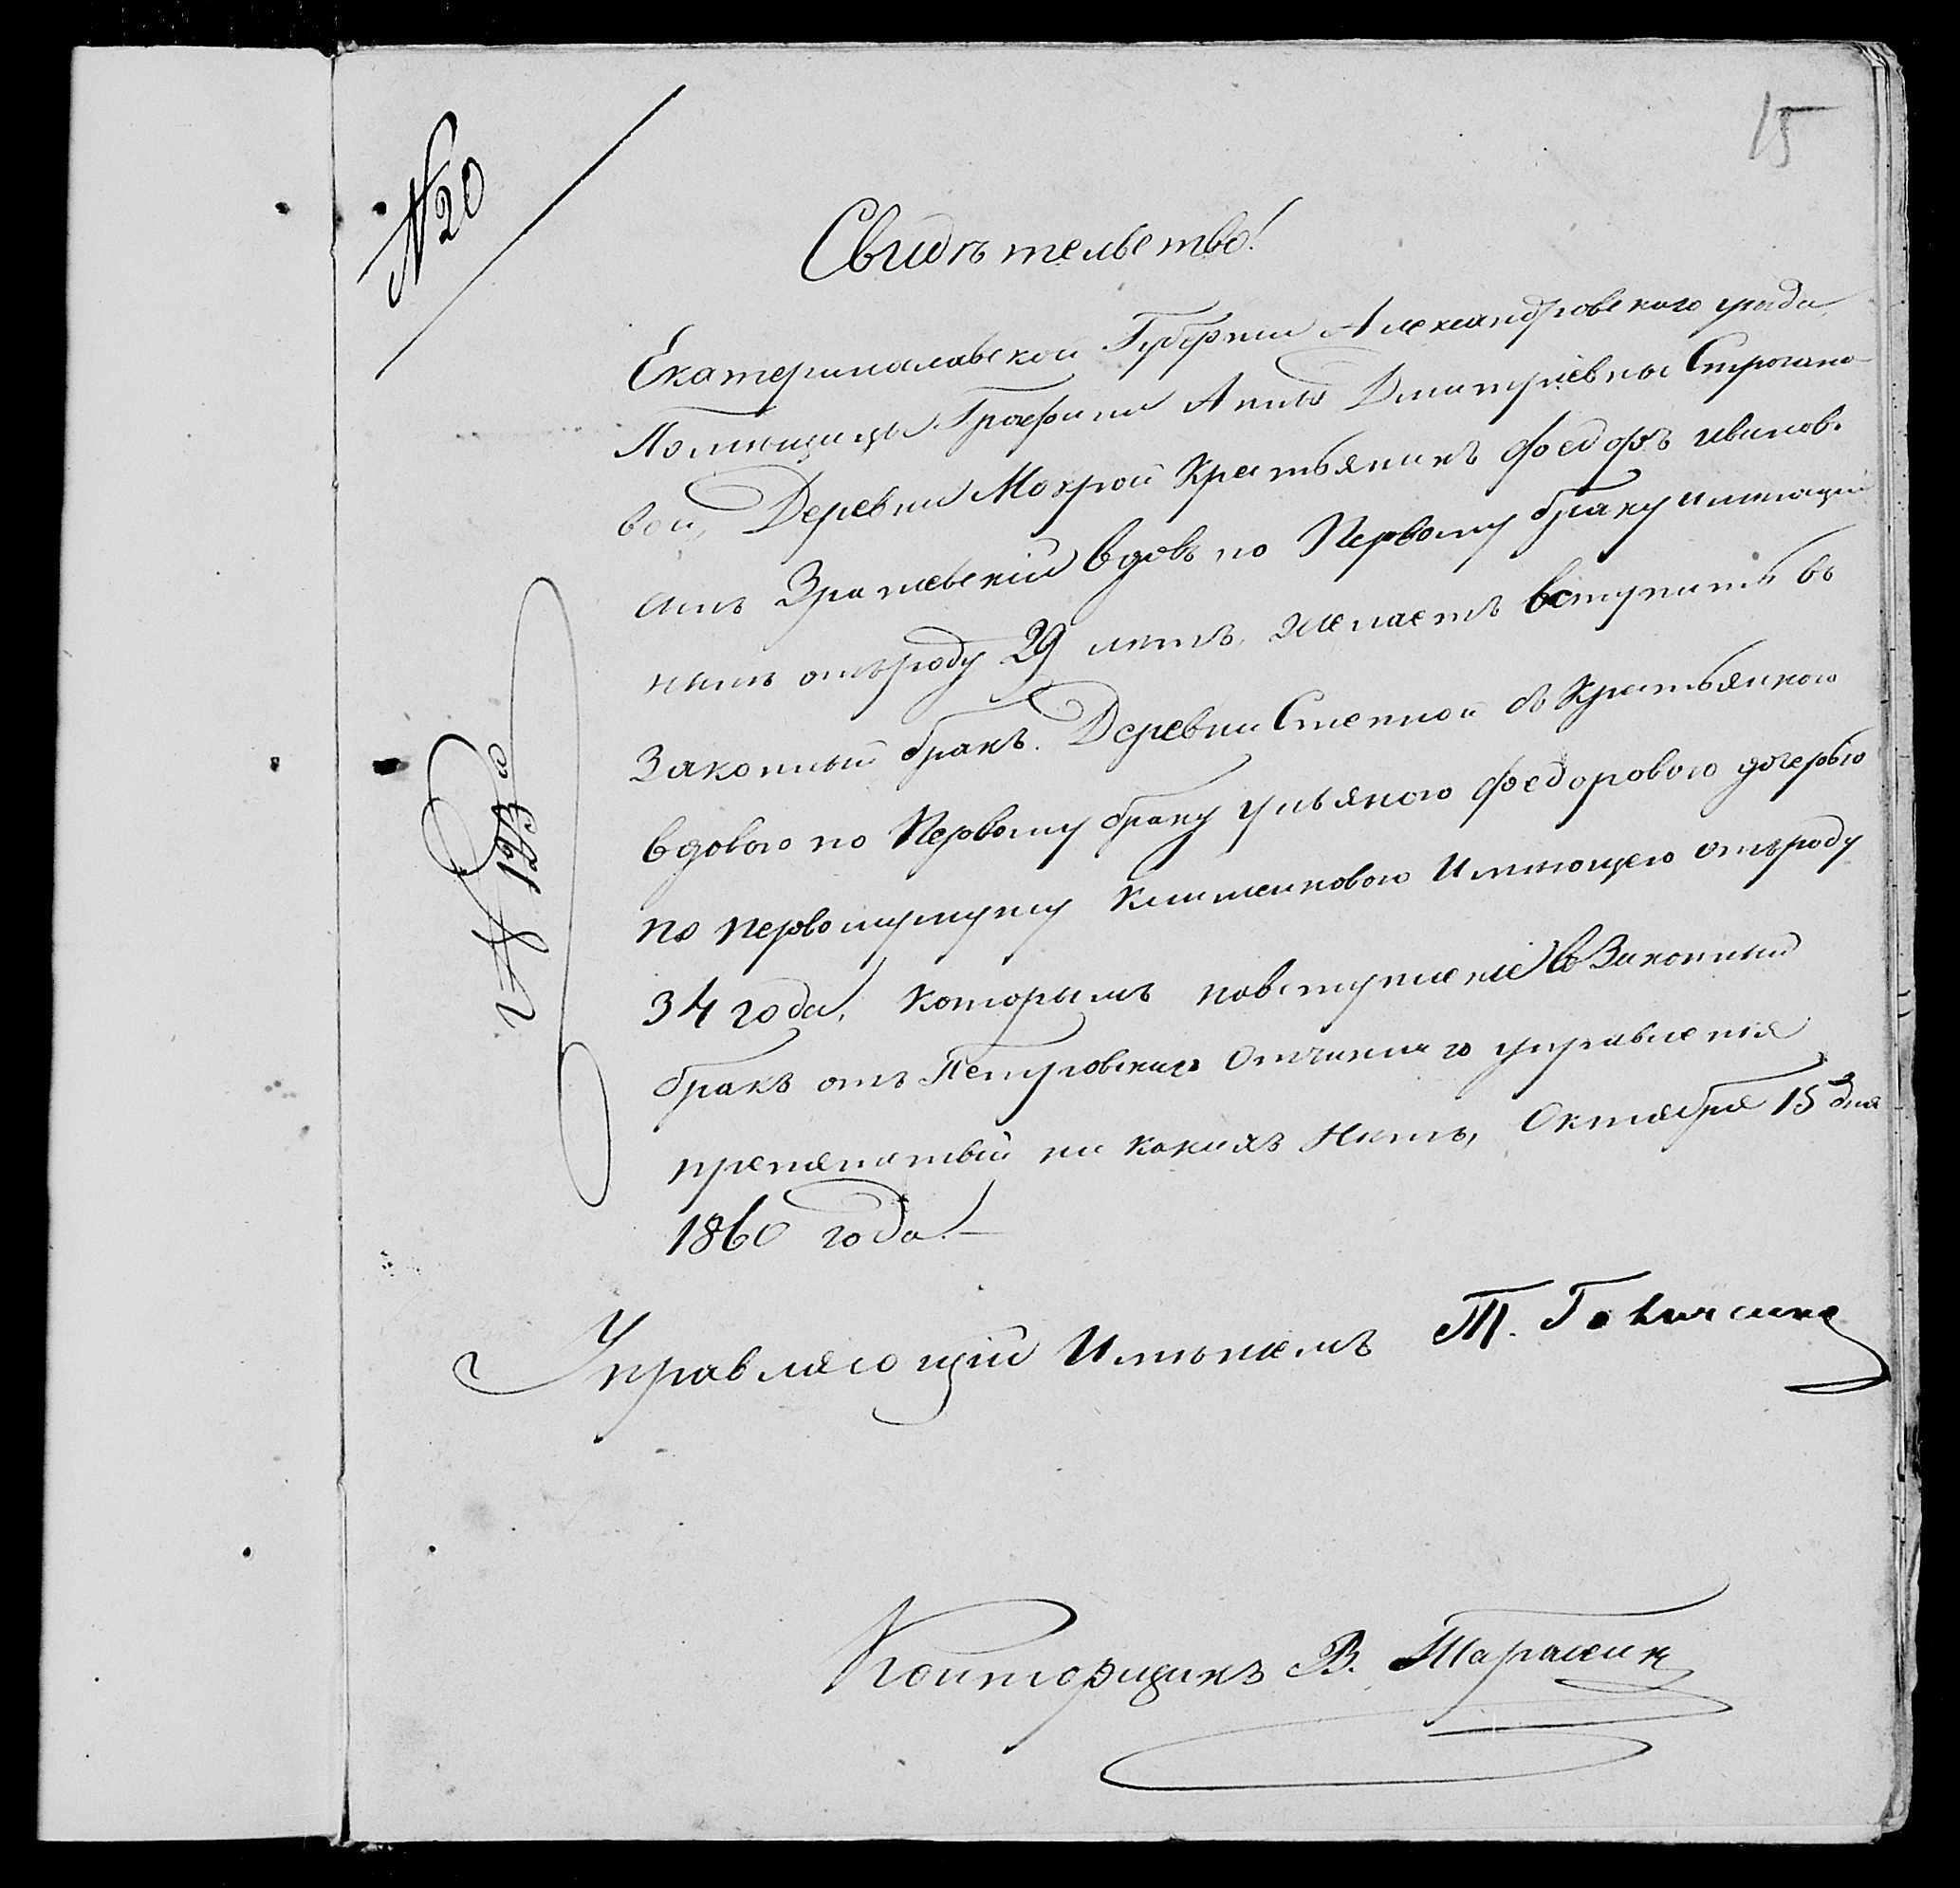 15
№ 20
Свидѣтельство!
Екатеринославской Губерніи Александровскаго уѣзда
Помѣщицы Графини Анны Дмитріевны Строгано-
вой, Деревни Мокрой Крестьянинъ Федоръ Иванов.
сынъ вдовъ по Первому браку имѣющій
отъ роду 29 лѣтъ, желаетъ вступить въ
Законный бракъ. Деревни Степной съ Крестьянкою
вдовою по Первому браку Ульяною Федоровою дочерью
по первому мужу Имѣющею отъ роду
34 года, Которымъ повступленіе въ Законный
бракъ отъ Петровскаго Отчинаго управленія
препятствій ни какихъ Нѣтъ, Октября 15 дня
1860 года.—
№ 123й
Управляющій Имѣніемъ Т.
Конторщикъ В.